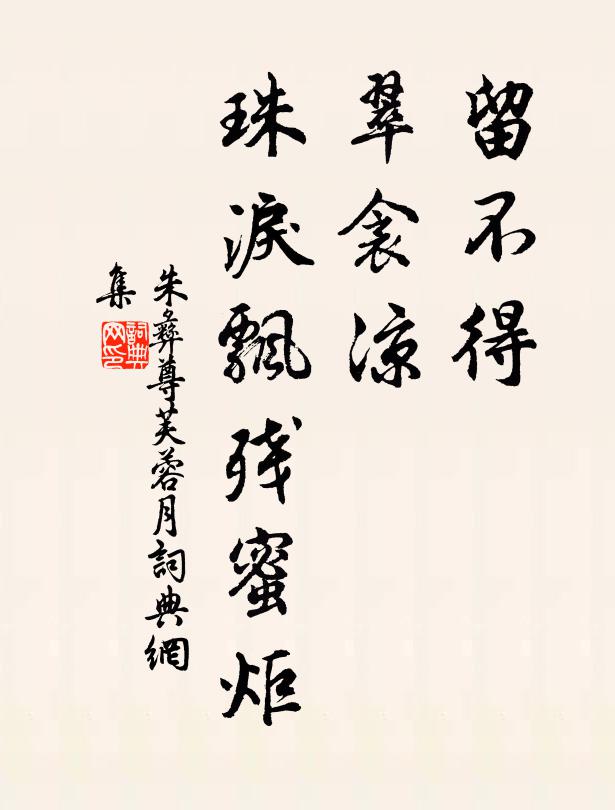 留不得
翠衾凉
珠淚飄残蜜炬
朱彝尊芙蓉月詞典網
集
詞典網印